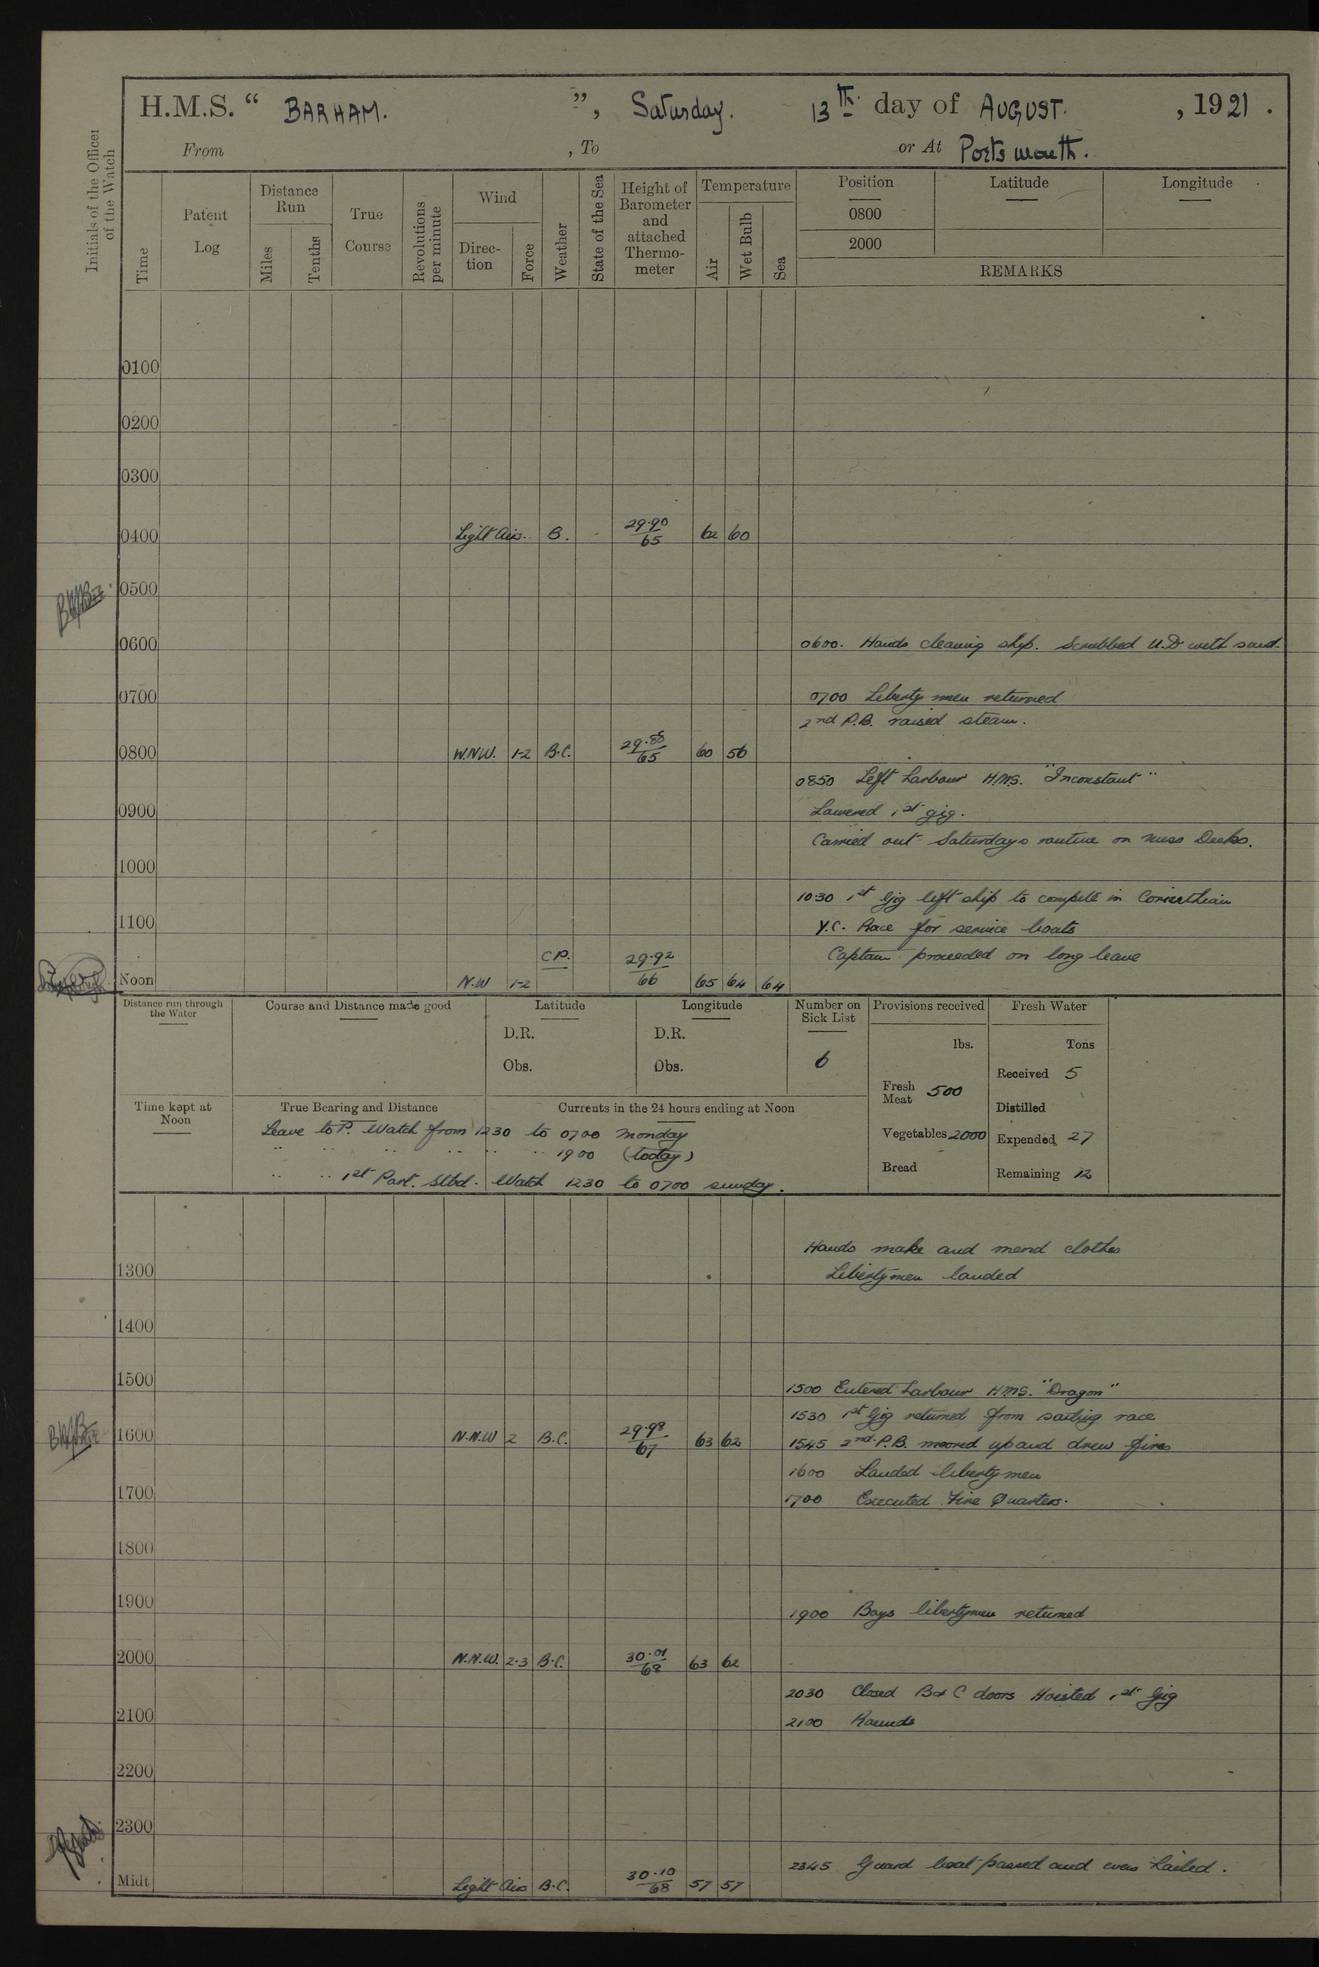 H.M.S. “ BARHAM. ”, Saturday. 13th day of AUGUST. , 1921 .
From , To or At Portsmouth.
Initials of the Officer of the Watch
Time
Patent Log
Distance Run
Miles
Tenths
True Course
Revolutions per minute
Wind
Direc-tion
Force
Weather
State of the Sea
Height of Barometer and attached Thermo-meter
Temperature
Air
Wet Bulb
Sea
Position
0800
2000
Latitude
Longitude
REMARKS
0100
0200
0300
0400 Light Airs. B. 29.90 65 62 60
0500
0600 0600. Hands cleaning ship. Scrubbed U.D with sand.
0700 0700 Liberty men returned
2nd P.B. raised steam.
0800 W.N.W. 1-2 B.C. 29.88 65 60 56
0850 Left harbour H.M.S. "Inconstant"
0900 Lowered 1st gig.
Carried out Saturdays routine on mess Decks.
1000
10.30 1st Gig left ship to compete in Corinthian
1100 Y.C. Race for service boats
Captain proceeded on long leave
Noon N.W 1-2 C.P. 29.92 66 65 64 64
Distance run through the Water
Course and Distance made good
Latitude
D.R.
Obs.
Longitude
D.R.
Obs.
Number on Sick List
6
Provisions received
lbs.
Fresh Meat 500
Vegetables 2000
Bread
Fresh Water
Tons
Received 5
Distilled
Expended 27
Remaining 12
Time kept at Noon
True Bearing and Distance
Currents in the 24 hours ending at Noon
Leave to P. Watch from 1230 to 0700 Monday
" " " " " " 1900 (today)
" " 1st Part. Stbd. Watch 1230 to 0700 sunday.
Hands make and mend clothes
1300 Libertymen landed
1400
1500 1500 Entered harbour H.M.S. "Dragon"
1530 1st Gig returned from sailing race
1600 N.N.W 2 B.C. 29.98 67 63 62 1545 2nd P.B. moored up and drew fires
1600 Landed libertymen
1700 1700 Executed Fire Quarters.
1800
1900 1900 Boys libertymen returned
2000 N.N.W. 2-3 B.C. 30.01 68 63 62
2030 Closed B & C doors Hoisted 1st Gig
2100 2100 Rounds
2200
2300
2345 Guard boat passed and was hailed.
Midt Light Airs B.C. 30.10 68 57 57